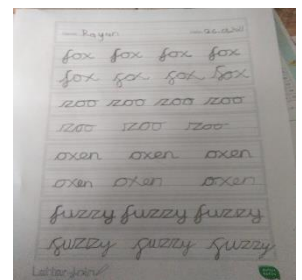 Rayan
fox fox fox fox
fox fox fox fox
zoo zoo zoo zoo
zoo zoo zoo
oxen oxen oxen
oxen oxen oxen
fuzzy fuzzy fuzzy
fuzzy fuzzy fuzzy
Letter-join